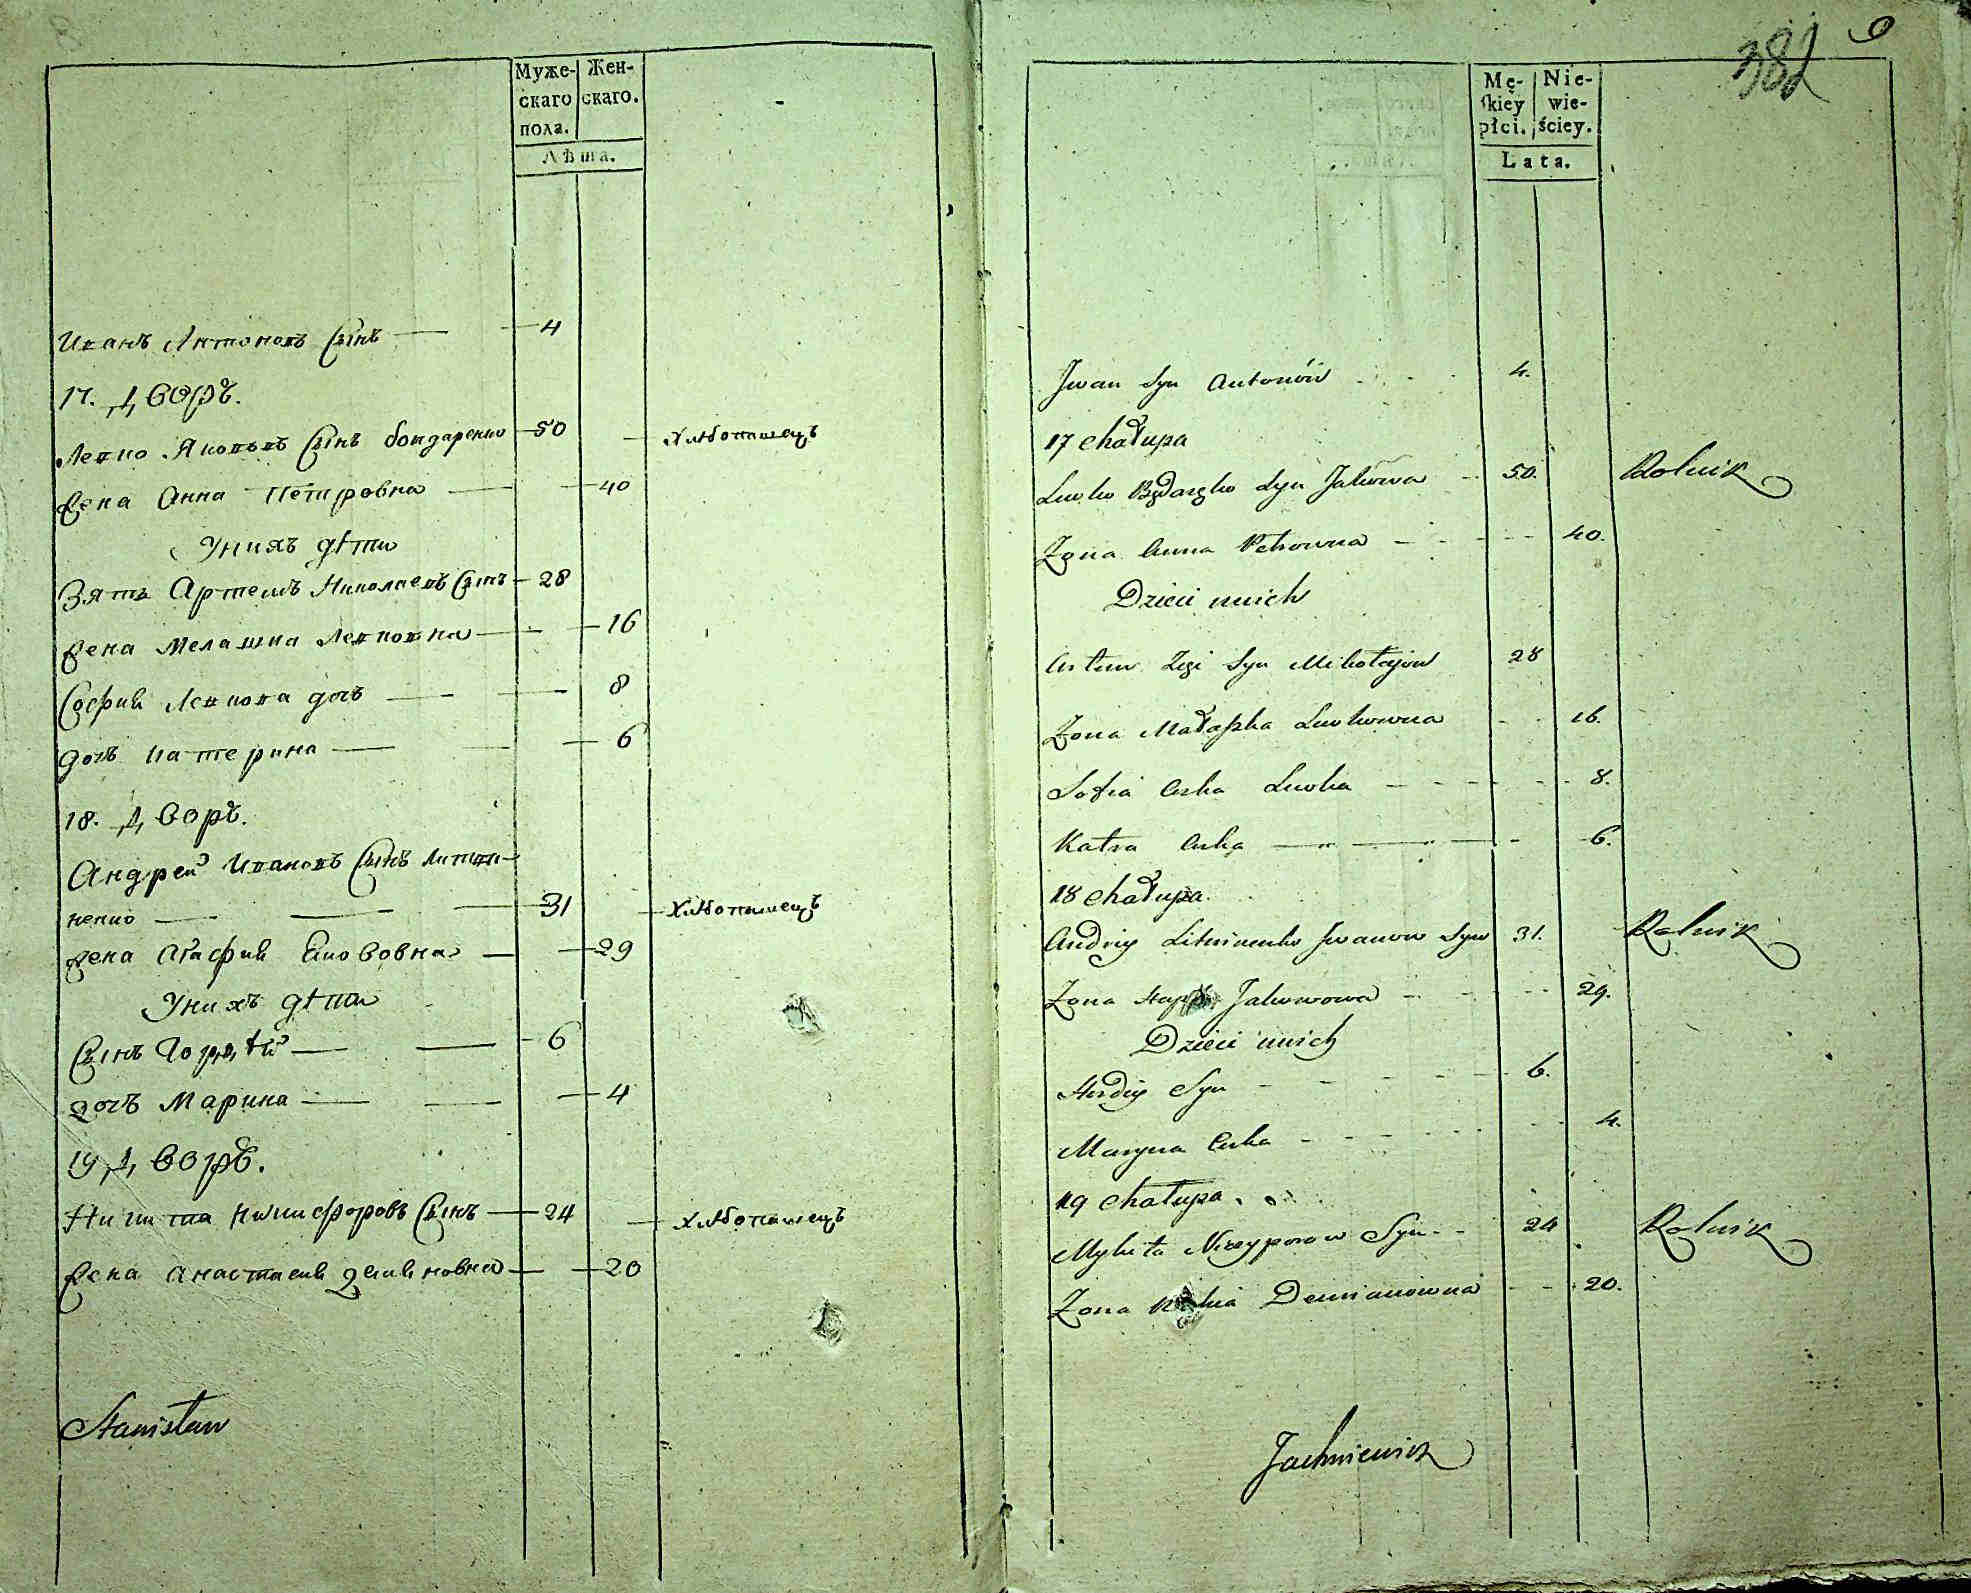 Муже-
скаго
пола.
Жен-
скаго.
Лѣта.
Иванъ Антоновъ Сынъ 4
17. Дворъ.
Левко Яковъвъ Сынъ бондаренко 50 Хлѣбопашецъ
Жена Анна Петровна 40
У нихъ дѣти
Зять Артемъ Николаевъ Сынъ 28
Жена Мелашка Левковна 16
София Левкова дочь 8
дочь Катерина 6
18. Дворъ.
Андрей Ивановъ Сынъ Литви-
ненко 31 Хлѣбопашецъ
Жена Агафия Якововна 29
У нихъ дѣти
Сынъ Гордѣй 6
дочъ Марина 4
19 Дворъ.
Никита Никифоровъ Сынъ 24 Хлѣбопашецъ
Жена Анастасия Демяновна 20
Stanisław
382
9
Mę-
skiey
płci.
Nie-
wie-
ściey.
Lata.
Jwan Syn Antonów 4.
17 Chałupa
Lewko Syn Jakowa 50. Rolnik
Zona Anna Petrowna 40.
Dzieci unich
Artem Syn Mikołajow 28
Zona Małaszka Lewkowna 16.
Sofia Curka Lewka 8.
Katra Curka 6.
18 Chałupa.
Andriy Litwinenko Jwanow Syn 31. Rolnik
Zona Jakowowa 29.
Dzieci unich
Hordiy Syn 6.
Maryna Curka 4.
19 Chałupa.
Mykita Niczyporow Syn 24 Rolnik
Zona Demianowna 20.
Jachniewicz